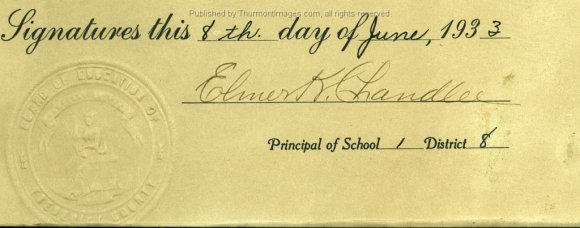 Published by ThurmontImages.com, all rights reserved
Signatures this 8 th. day of June, 1933
Elmer K. Chandlee
Principal of School 1 District 8
BOARD OF EDUCATION OF
COUNTY